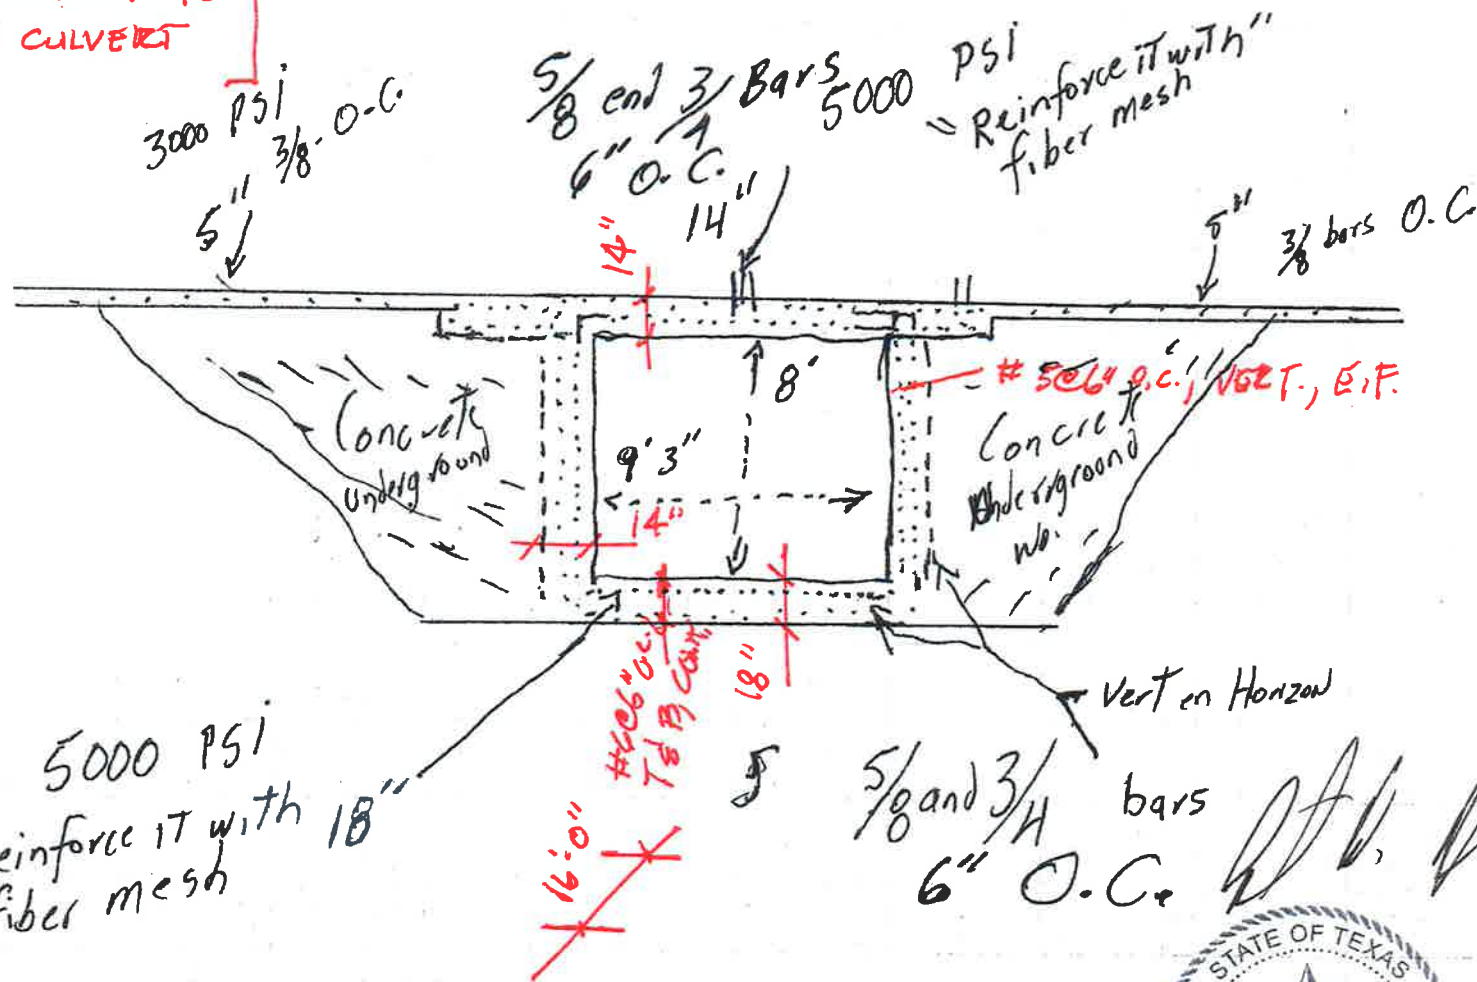 CULVERT
3000 PSI
3/8 O.C.
5"
5/8 end 3/4 Bars
6" O.C.
14"
14"
5000 PSI
"Reinforce iT with"
fiber mesh
5"
3/8 bars O.C.
8'
9' 3"
14"
Concrete
underground
# 5@6" O.C., VERT., E.F.
Concrete
Underground
18"
#6@6" O.C.
T & B Cont.
16'-0"
Vert en Horizon
5000 PSI
einforce iT with 18"
fiber mesh
5/8 and 3/4 bars
6" O.C.
STATE OF TEXAS